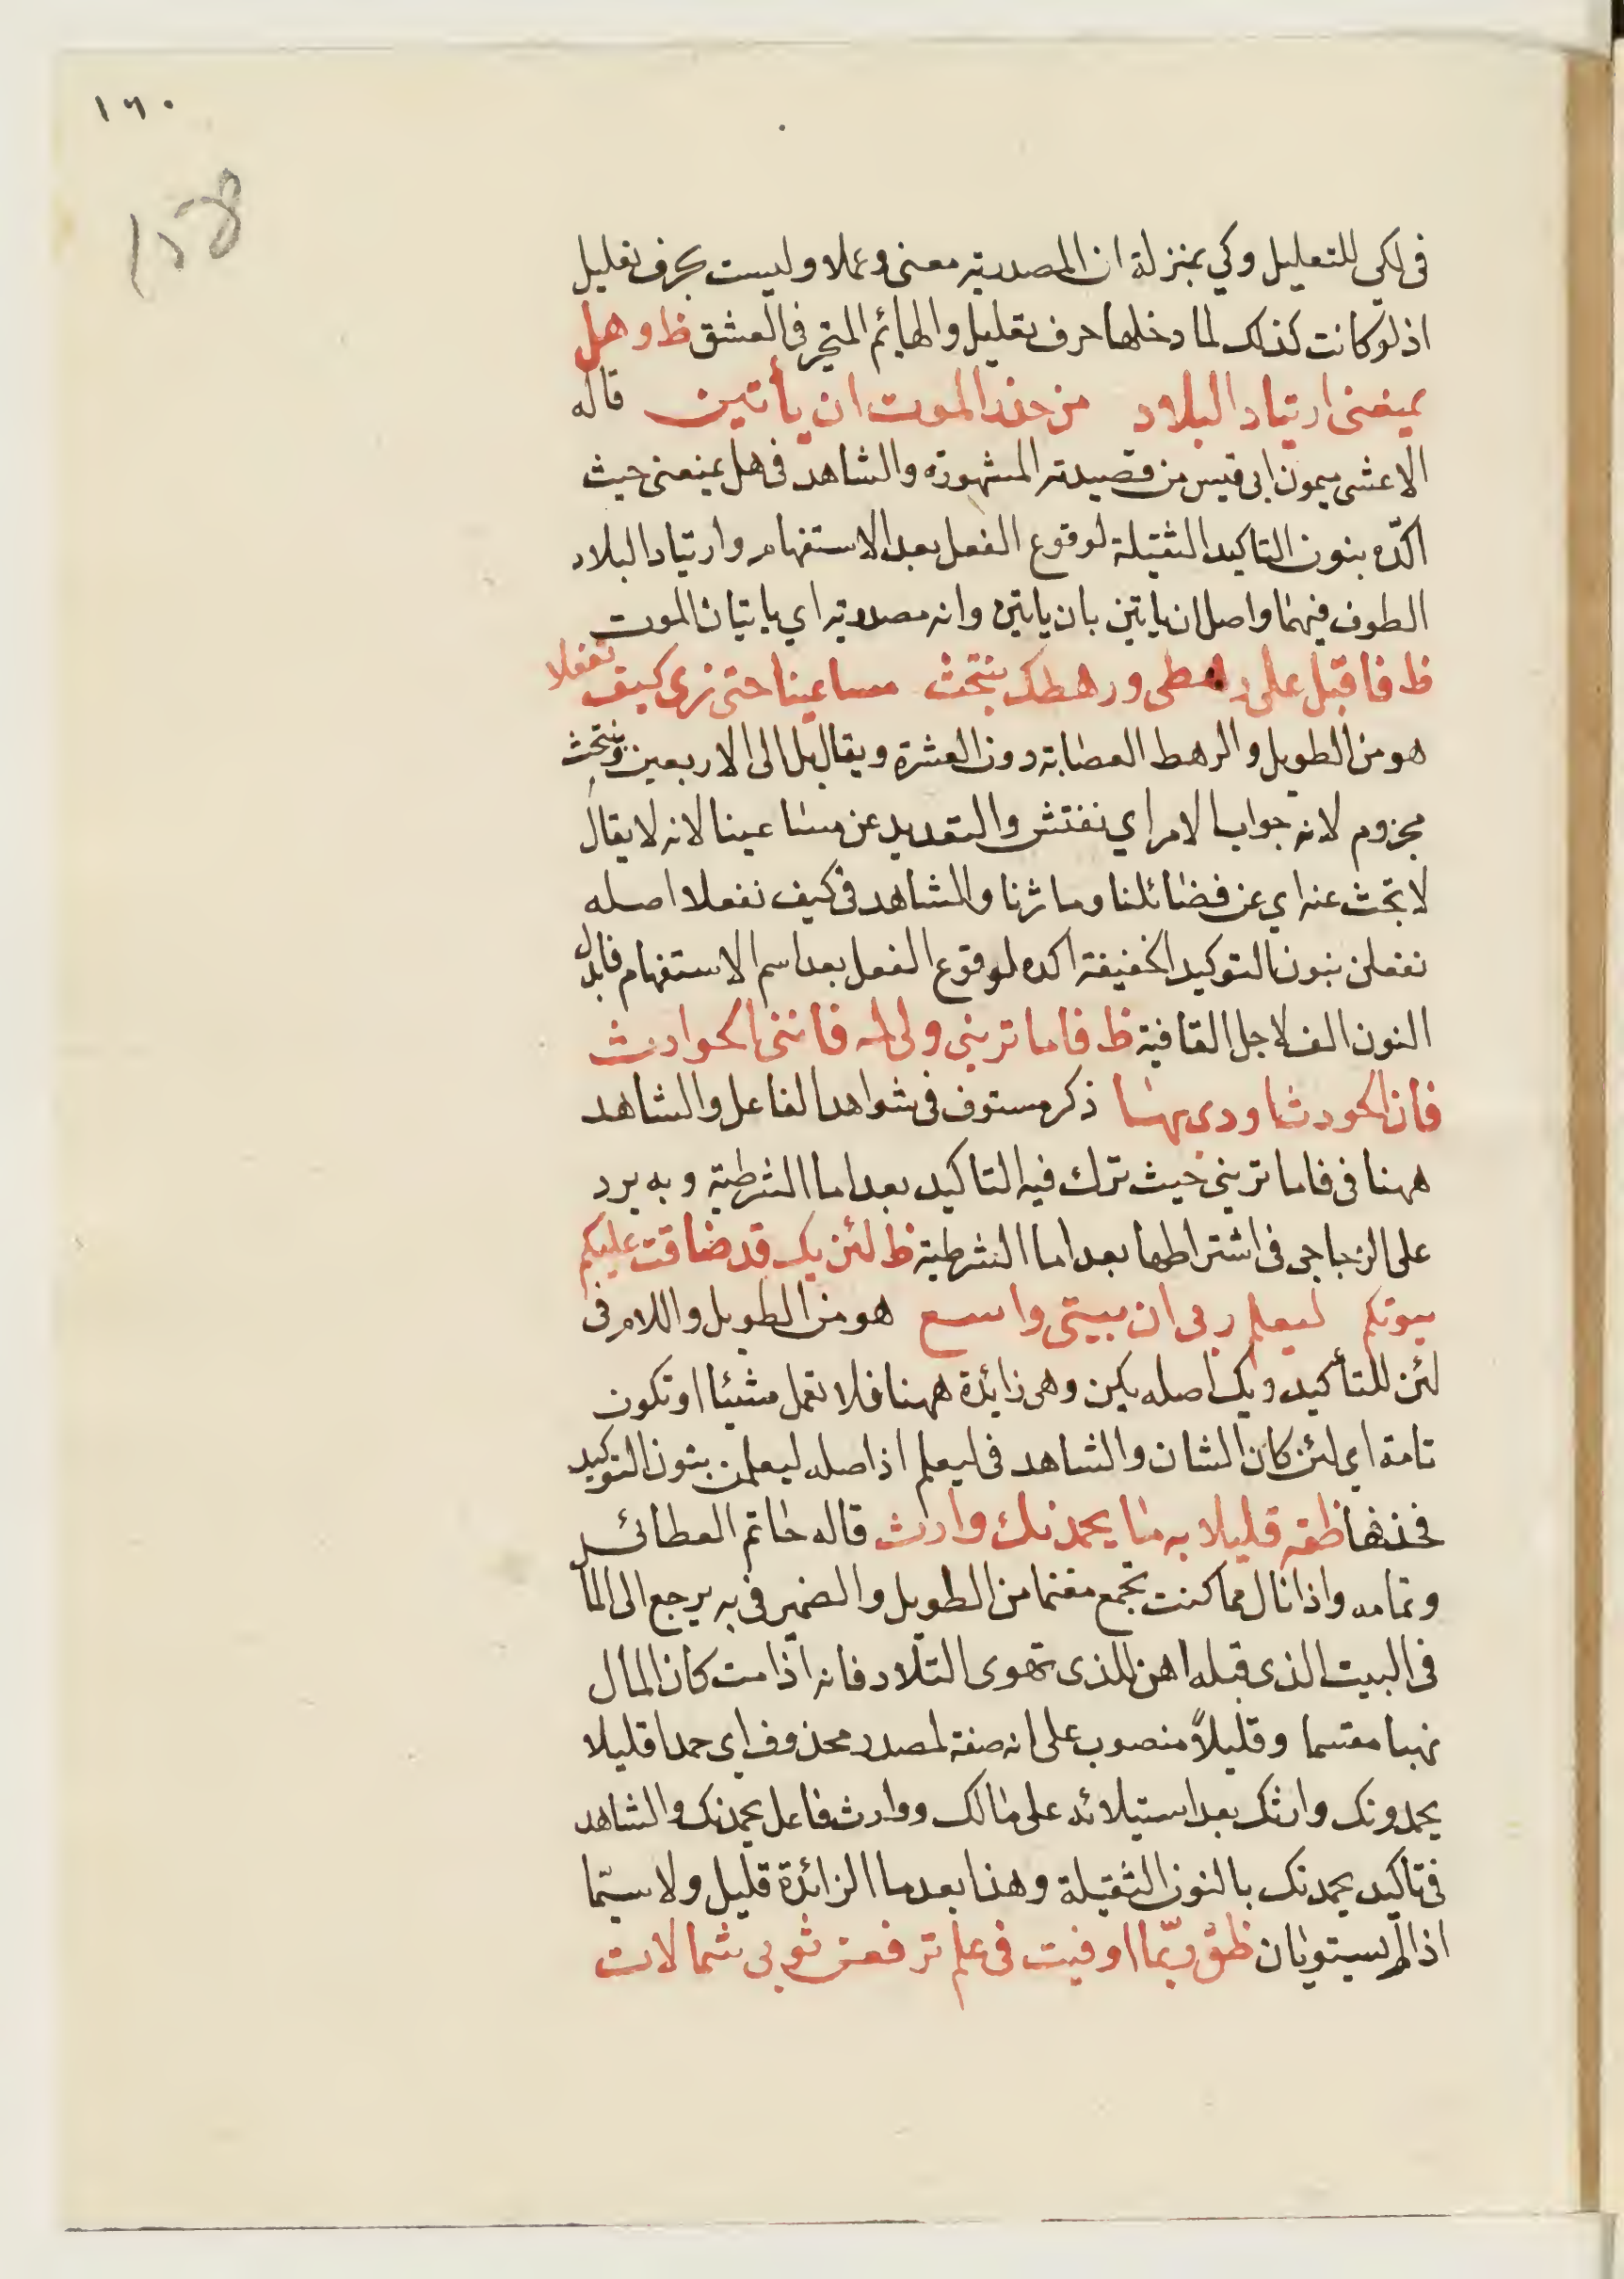 ١٦٠
158
فى لكي للتعليل وكي بمنزلة ان المصدرية معنى وعملا وليست بحرف تعليل
اذ لو كانت كذلك لما دخلها حرف تعليل والهائم المتحير فى العشق ظ وهل
يمنعنى ارتياد البلاد من حذر الموت ان يأتين قاله
الاعشى ميمون ابى قيس من قصيدته المشهورة والشاهد فى هل يمنعنى حيث
اكّده بنون التاكيد الثقيلة لوقوع الفعل بعد الاستفهام وارتياد البلاد
الطوف فيها واصل ان ياتين بان ياتين وان مصدرية اي باتيان الموت
ظ فاقبل على رهطى ورهطك نبتحث مساعينا حتى نرى كيف نفعلا
هو من الطويل والرهط العصابة دون العشرة ويقال بل الى الاربعين ونبتحث
مجزوم لانه جواب الامر اي نفتش والتقدير عن مساعينا لانه لا يقال
لا بحث عنه اي عن فضائلنا وماثرنا والشاهد فى كيف نفعلا اصله
نفعلن بنون التوكيد الخفيفة اكده لوقوع الفعل بعد اسم الاستفهام فابدل
النون الف لاجل القافية ظ فاما ترينى ولى لمه فاننى الحوادث
فان الحودثا ودى بها ذكر مستوف فى شواهد الفاعل والشاهد
ههنا فى فاما ترينى حيث ترك فيه التاكيد بعد اما الشرطية وبه يرد
على الزجاجى فى اشتراطها بعد اما الشرطية ظ لئن يك قد ضاقت عليكم
بيوتكم ليعلم ربى ان بيتى واسع هو من الطويل واللام فى
لئن للتأكيد ويك اصله يكن وهى زائدة ههنا فلا تعمل شيئا او تكون
تامة اي لئن كان الشان والشاهد فى ليعلم اذ اصله ليعلمن بنون التوكيد
فحذفها ظقه قليلا به ما يحمدنك وارث قاله حاتم الطائى
وتمامه واذا نال مما كنت تجمع مغنما من الطويل والضمير فى به يرجع الى المال
فى البيت الذى قبله اهن للذى تهوى التلاد فانه اذا مت كان المال
نهبا مقسما وقليلاً منصوب على انه صفة لمصدر محذوف اى حمدا قليلا
يحمدونك وارثك بعد استيلائه على مالك ووارث فاعل يحمدنك والشاهد
فى تاكيد يحمدنك بالنون الثقيلة وهذا بعد ما الزائدة قليل ولا سيّما
اذا لم يستويان ظقه ربّما اوفيت فى علم ترفعن ثوبى شمالات